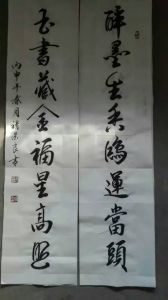 醉墨生香鴻運當頭
玉書藏金福星高照
丙申年春月